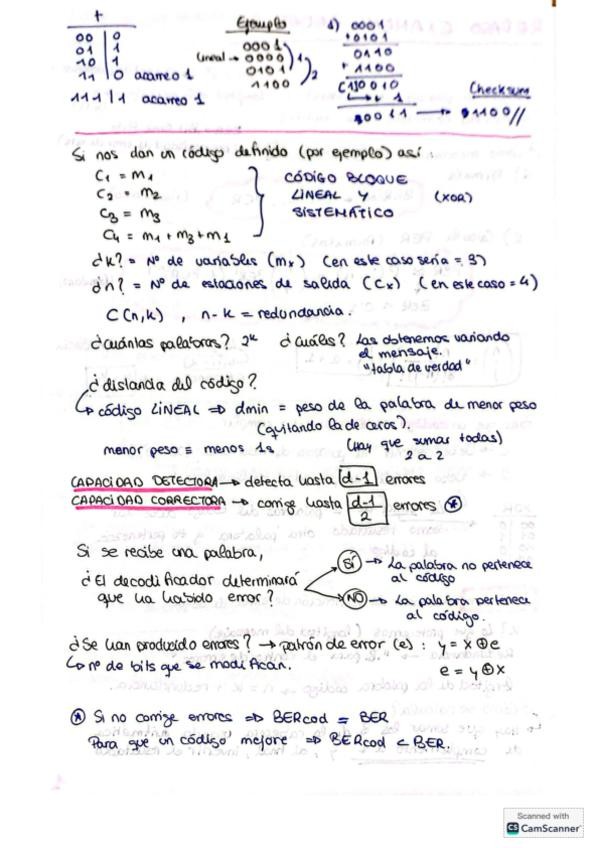 +
00 | 0
01 | 1
10 | 1
11 | 0 acarreo 1
111 | 1 acarreo 1
Ejemplo
0001
Lineal → 0000
0101
1100
1
2
1) 0001
+0101
0110
+ 1100
(1)0010
↳ 1
0011 → 1100//
Checksum
Si nos dan un código definido (por ejemplo) así:
C1 = m1
C2 = m2
C3 = m3
C4 = m1 + m3 + m1
CÓDIGO BLOQUE
LINEAL Y (XOR)
SISTEMÁTICO
¿k? = Nº de variables (mx) (en este caso sería = 3)
¿n? = Nº de estaciones de salida (Cx) (en este caso = 4)
C(n,k), n-k = redundancia.
¿cuántas palabras? 2^k ¿cuáles? Las obtenemos variando
el mensaje.
"tabla de verdad"
¿distancia del código?
↳ código LINEAL ⇒ dmin = peso de la palabra de menor peso
(quitando la de ceros).
menor peso ≡ menos 1s (Hay que sumar todas)
2 a 2
CAPACIDAD DETECTORA → detecta hasta d-1 errores
CAPACIDAD CORRECTORA → corrige hasta d-1/2 errores *
Si se recibe una palabra,
¿El decodificador determinará
que ha habido error?
SÍ → La palabra no pertenece
al código
NO → La palabra pertenece
al código.
¿Se han producido errores? → patrón de error (e): y = x ⊕ e
↳ nº de bits que se modifican. e = y ⊕ x
* Si no corrige errores ⇒ BERcod = BER
Para que un código mejore ⇒ BERcod < BER.
Scanned with
CS CamScanner